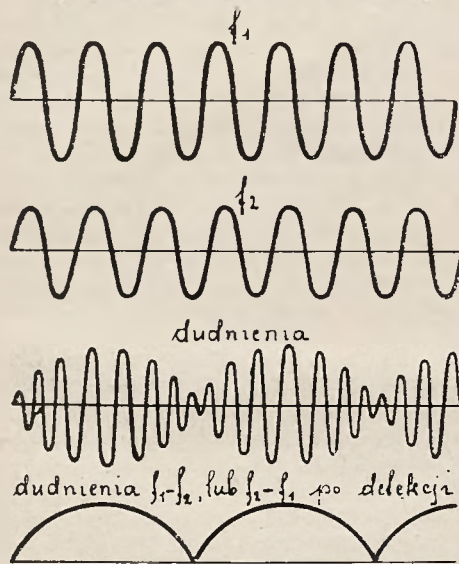 f₁
f₂
dudnienia
dudnienia f₁-f₂, lub f₂-f₁ po detekcji